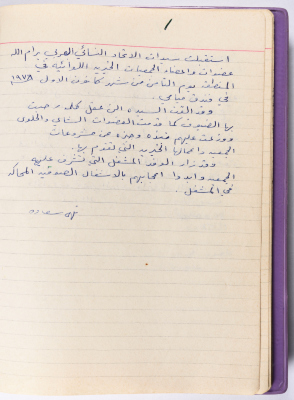 ١
استقبلت سيدات الاتحاد النسائي العربي برام الله
عضوات واعضاء الجمعيات الخيرية اللوائية في
المنطقة يوم الثامن من شهر كانون الاول ١٩٧٨
في فندق ميامي.
وقد القت السيده الن عقل كلمه رحبت
بها الضيوف كما قدمت العضوات الشاي والحلوى
ووزعت عليهم نبذه وجيزه عن مشروعات
الجمعيه واعمالها الخيرية التي تقوم بها.
وقد زار الوفد المشغل التي تشرف عليه
الجمعيه وابدوا اعجابهم بالاشغال الصوفيه المحاكه
في المشغل.
نهى سعاده